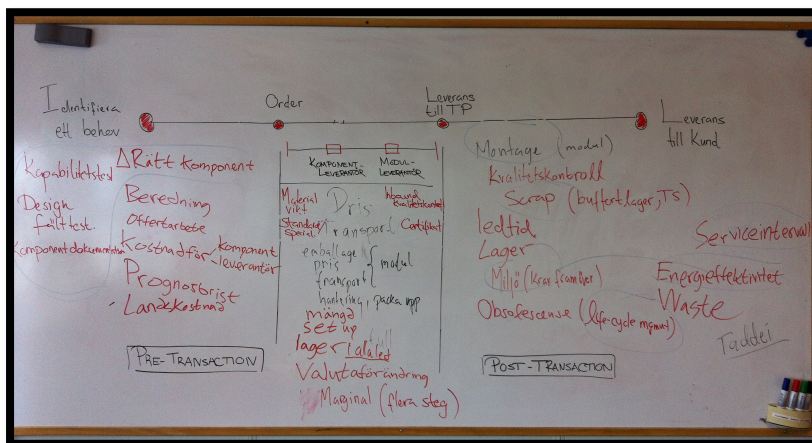 Identifiera
ett behov
Order
Leverans
till TP
Leverans
till Kund
Kapabilitetstest
Design
fälttest.
Komponentdokumentation
Δ Rätt komponent
Beredning
Offertarbete
Kostnad för komponent
leverantör
Prognosbrist
Landskostnad
PRE-TRANSACTION
KOMPONENT-
LEVERANTÖR
MODUL-
LEVERANTÖR
Material
vikt
Pris
Inbound
kvalitetskontroll
Standard/
special
Transport
Certifikat
emballage
pris
transport
modul
hantering, packa upp
mängd
Set up
lager
Valutaförändring
Marginal (flera steg)
Montage (modul)
Kvalitetskontroll
Scrap (buffertlager, TS)
ledtid
Lager
Miljö (krav framöver)
Obsolescense (life-cycle mgmnt)
POST-TRANSACTION
Serviceintervall
Energieffektivitet
Waste
Taddei